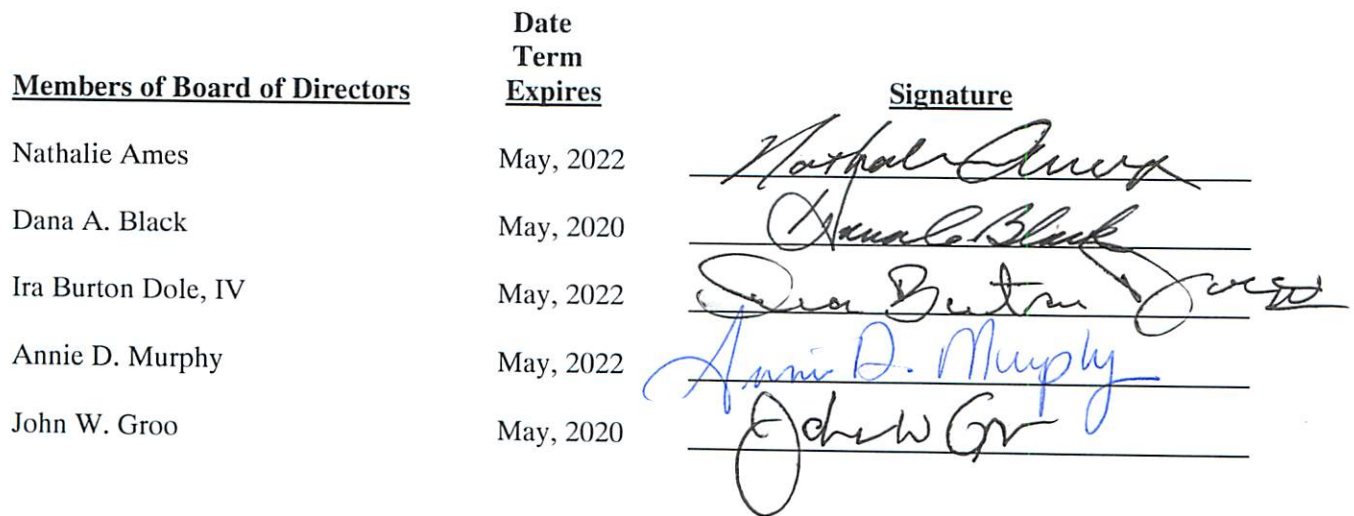 Date
Term
Members of Board of Directors Expires Signature
Nathalie Ames May, 2022 Nathalie Ames
Dana A. Black May, 2020 Dana A. Black
Ira Burton Dole, IV May, 2022 Ira Burton Dole IV
Annie D. Murphy May, 2022 Annie D. Murphy
John W. Groo May, 2020 John W Groo